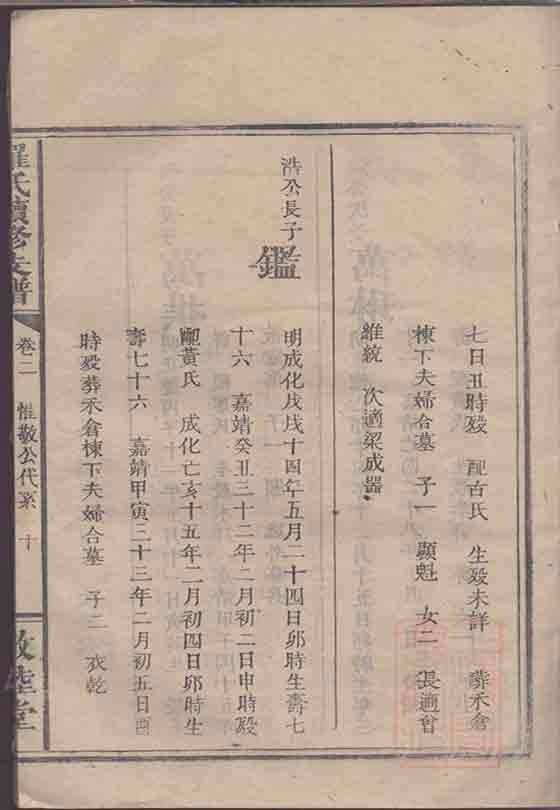 七日丑時歿 配古氏 生歿未詳 葬禾倉
棟下夫婦合墓 子一 顯魁 女二 長適曾
維統 次適梁成器
浩公長子
鑑
明成化戊戌十四年五月二十四日卯時生壽七
十六 嘉靖癸丑三十二年二月初二日申時歿
配黃氏 成化亡亥十五年二月初四日卯時生
壽七十六 嘉靖甲寅三十三年二月初五日酉
時歿葬禾倉棟下夫婦合墓 子二 衣乾
羅氏續修支譜
卷二 惟敬公代系 十
敦睦堂